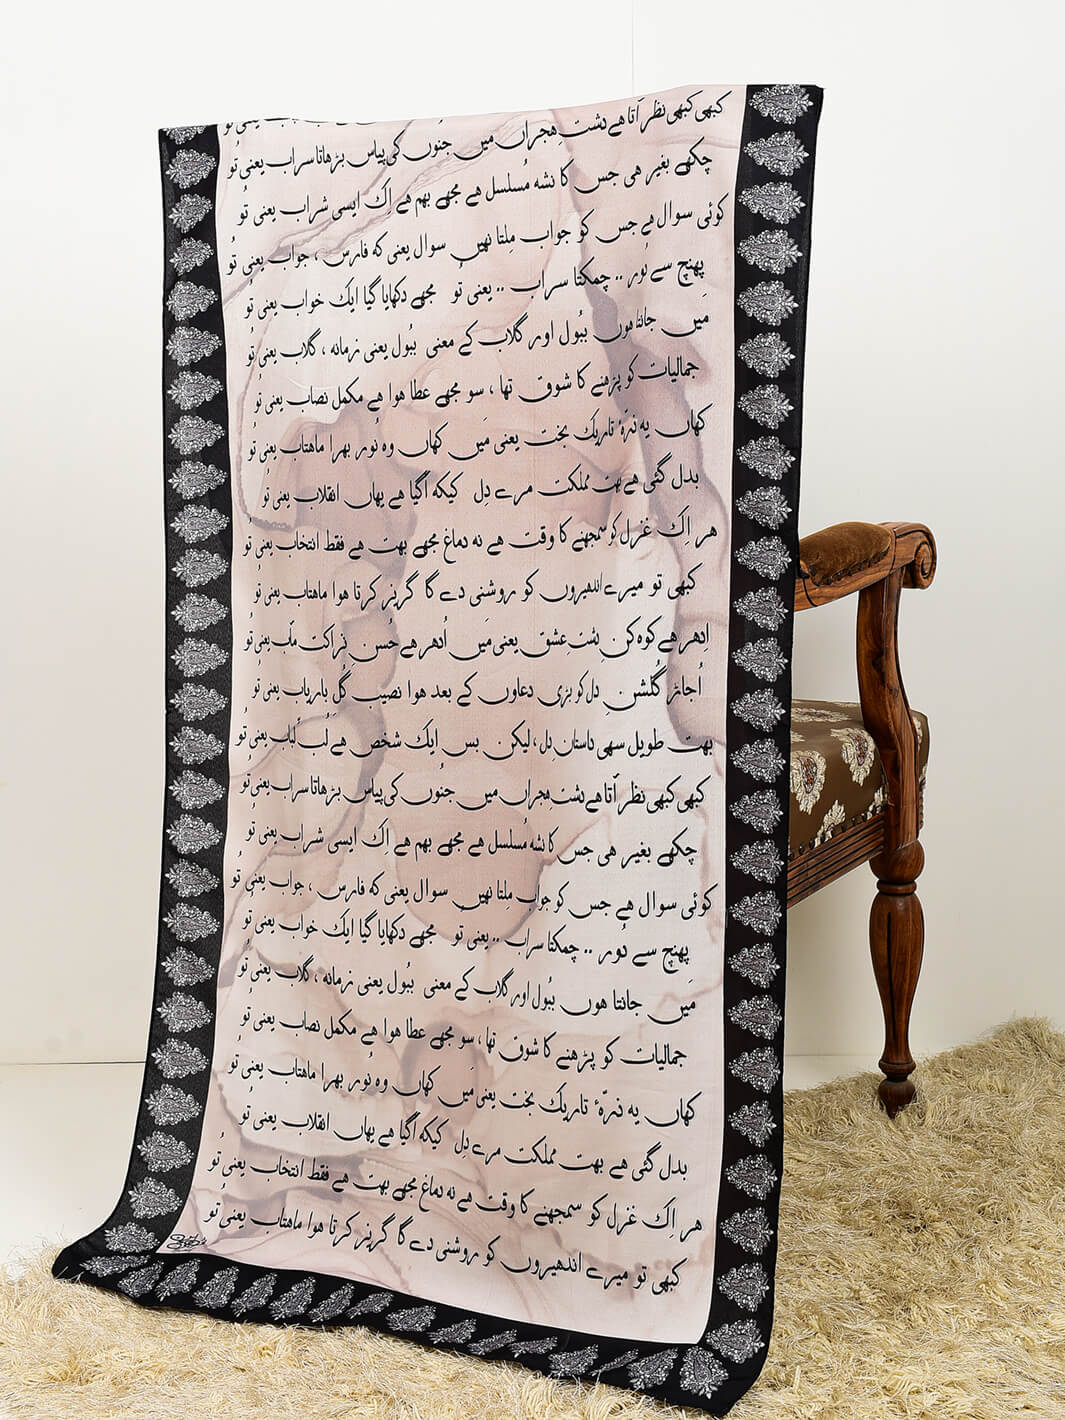 کبھی کبھی نظر آتا ہے دشتِ ہجراں میں جنوں کی پیاس بڑھاتا سراب یعنی تُو
چکھے بغیر ہی جس کا نشہ مُسلسل ہے مجھے بہم ہے اِک ایسی شراب یعنی تُو
کوئی سوال ہے جس کو جواب مِلتا نہیں سوال یعنی کہ فارس ، جواب یعنی تُو
پہنچ سے دُور .. چمکتا سراب .. یعنی تُو مجھے دکھایا گیا ایک خواب یعنی تُو
مَیں جانتا ہوں ببُول اور گلاب کے معنی ببُول یعنی زمانہ ، گلاب یعنی تُو
جمالیات کو پڑھنے کا شوق تھا ، سو مجھے عطا ہوا ہے مکمل نصاب یعنی تُو
کہاں یہ ذرّۂ تاریک بخت یعنی مَیں کہاں وہ نُور بھرا ماہتاب یعنی تُو
بدل گئی ہے بہت مملکت مرے دِل کیکہ آگیا ہے یہاں انقلاب یعنی تُو
ہر اِک غزل کو سمجھنے کا وقت ہے نہ دماغ مجھے بہت ہے فقط انتخاب یعنی تُو
کبھی تو میرے اندھیروں کو روشنی دے گا گریز کرتا ہوا ماہتاب یعنی تُو
اِدھر ہے کوہ کنِ دشتِ عشق یعنی مَیں اُدھر ہے حُسن نزاکت مآب یعنی تُو
اُجاڑ گُلشنِ دِل کو بڑی دعاوں کے بعد ہوا نصیب گُلِ باریاب یعنی تُو
بہت طویل سہی داستانِ دِل ، لیکن بس ایک شخص ہے لُبِ لُباب یعنی تُو
کبھی کبھی نظر آتا ہے دشتِ ہجراں میں جنُوں کی پیاس بڑھاتا سراب یعنی تُو
چکھے بغیر ہی جس کا نشہ مُسلسل ہے مجھے بہم ہے اِک ایسی شراب یعنی تُو
کوئی سوال ہے جس کو جواب مِلتا نہیں سوال یعنی کہ فارس ، جواب یعنی تُو
پہنچ سے دُور .. چمکتا سراب .. یعنی تُو مجھے دکھایا گیا ایک خواب یعنی تُو
مَیں جانتا ہوں ببُول اور گلاب کے معنی ببُول یعنی زمانہ ، گلاب یعنی تُو
جمالیات کو پڑھنے کا شوق تھا ، سو مجھے عطا ہوا ہے مکمل نصاب یعنی تُو
کہاں یہ ذرّۂ تاریک بخت یعنی مَیں کہاں وہ نُور بھرا ماہتاب یعنی تُو
بدل گئی ہے بہت مملکت مرے دِل کیکہ آگیا ہے یہاں انقلاب یعنی تُو
ہر اِک غزل کو سمجھنے کا وقت ہے نہ دماغ مجھے بہت ہے فقط انتخاب یعنی تُو
کبھی تو میرے اندھیروں کو روشنی دے گا گریز کرتا ہوا ماہتاب یعنی تُو